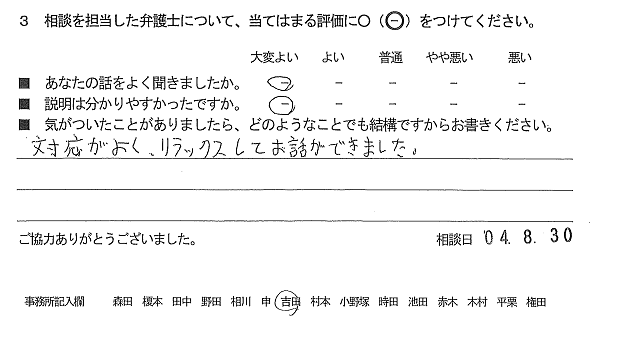 3 相談を担当した弁護士について、当てはまる評価に○（⊖）をつけてください。
大変よい よい 普通 やや悪い 悪い
■ あなたの話をよく聞きましたか。 － － － － －
■ 説明は分かりやすかったですか。 － － － － －
■ 気がついたことがありましたら、どのようなことでも結構ですからお書きください。
対応がよく、リラックスしてお話ができました。
ご協力ありがとうございました。 相談日 '04. 8. 30
事務所記入欄 森田 榎本 田中 野田 相川 申 吉田 村本 小野塚 時田 池田 赤木 木村 平栗 権田